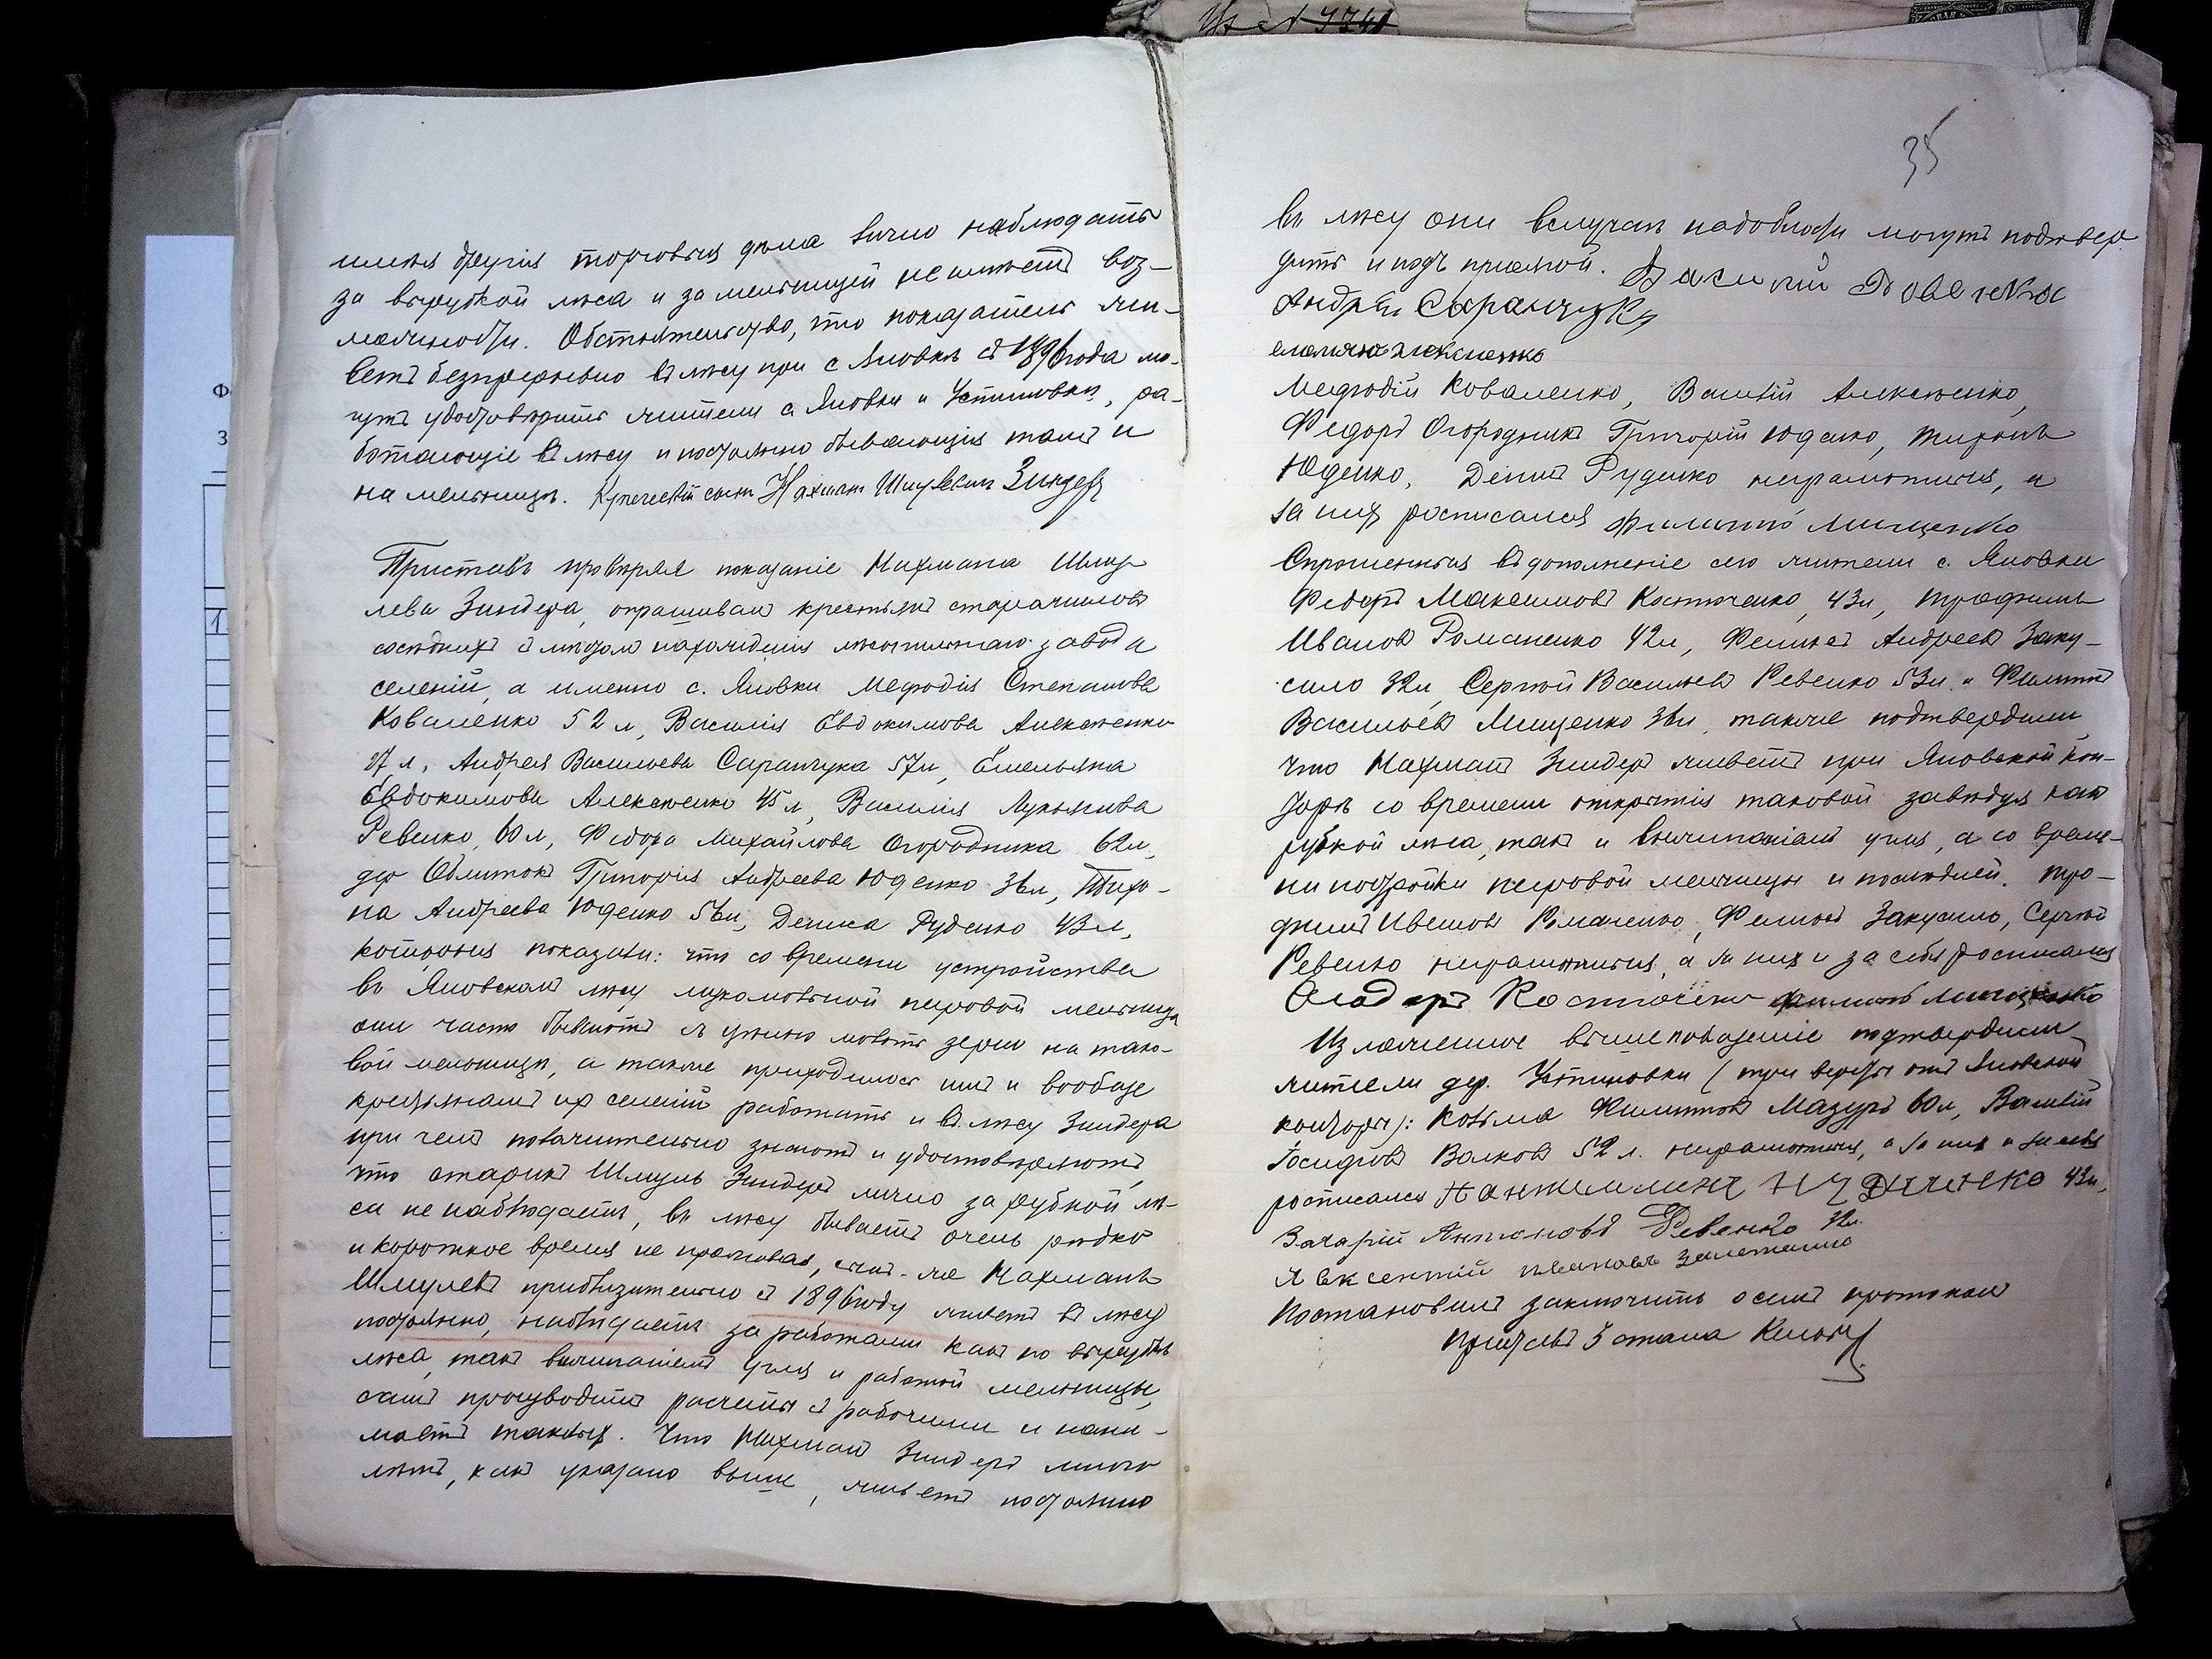 Уж № 4741
имѣя другія торговыя дѣла лично наблюдать
за вырубкой лѣса и за мельницей не имѣетъ воз-
можности. Обстоятельство, что показатель жи-
ветъ безпрерывно въ лѣсу при с. Яновкѣ съ 1896 года мо-
гутъ удостовѣрить жители с. Яновки и Устиновки, ра-
ботающіе въ лѣсу и постоянно бывающія тамъ и
на мельницѣ. Купеческій сынъ Нахманъ Шмулевичъ Зиндеръ
Приставъ провѣряя показаніе Нахмана Шмуй-
лева Зиндера, опрашивалъ крестьянъ старожиловъ
сосѣднихъ съ мѣстомъ нахожденія лѣсопильнаго завода
селеній, а именно с. Яновки Меѳодія Степанова
Коваленко 52 л, Василія Евдокимова Алексѣенко
л, Андрея Васильева Саранчука 57 л, Емельяна
Евдокимова Алексѣенко 45 л, Василія Лукьянова
Ревенко, 60 л, Федора Михайлова Огородника 62 л,
дер Облитокъ Григорія Андреева Юденко 36 л, Тихо-
на Андреева Юденко 56 л, Дениса Руденко 43 л,
которыя показали: что со времени устройства
въ Яновскомъ лѣсу мукомольной паровой мельницы
они часто бываютъ и нужно молоть зерно на тако-
вой мельницѣ, а также приходилось имъ и вообще
крестьянамъ ихъ селеній работать и въ лѣсу Зиндера
при чемъ положительно знаютъ и удостовѣряютъ,
что старикъ Шмуль Зиндеръ лично за рубкой лѣ-
са не наблюдаетъ, въ лѣсу бываетъ очень рѣдко
и короткое время не проживая, сынъ-же Нахманъ
Шмулевъ приблизительно съ 1896 году живетъ въ лѣсу
постоянно, наблюдаетъ за работами какъ по вырубкѣ
лѣса, такъ выжиганіемъ угля и работой мельницы,
самъ производитъ расчеты съ рабочими и нани-
маетъ таковыхъ. Что Нахманъ Зиндеръ много
лѣтъ, какъ указано выше, живетъ постоянно
35
въ лѣсу они въ случаѣ надобности могутъ подтвер-
дить и подъ присягой. Василий
Андрѣй Саранчукъ
емельян алексиенко
Меѳодій Коваленко, Василій Алексѣенко,
Федоръ Огородникъ Григорій Юденко, Тихонъ
Юденко, Денисъ Руденко неграмотныя, а
за нихъ росписался Филиппъ Мищенко
Спрошенныя въ дополненіе сего жители с. Яновки
Федоръ Максимовъ Костюченко, 43 л, Трофимъ
Ивановъ Романенко 42 л, Феликсъ Андреевъ Заку-
сило 32 л, Сергѣй Васильевъ Ревенко 53 л. и Филиппъ
Васильевъ Мищенко 36 л, также подтвердили,
что Нахманъ Зиндеръ живетъ при Яновской кон-
торѣ со времени открытія таковой завѣдуя какъ
рубкой лѣса, такъ и выжиганіемъ угля, а со време-
ни постройки паровой мельницы и послѣдней. Тро-
фимъ Ивановъ Романенко, Феликсъ Закусило, Сергѣй
Ревенко неграмотныя, а за нихъ и за себя росписался
Федоръ Костюченко Филиппъ Мищенко
Изложенное выше показаніе подтвердили
жители дер. Устиновки (три версты отъ Яновской
конторы): Козьма Филиповъ Мазуръ 60 л, Василій
Іосифовъ Волковъ 52 л. неграмотныя, а за нихъ и за себя
росписался 42 л,
Захарій Антоновъ Ревенко 32 л.
Авксентий ивановъ
Постановилъ заключить о семъ протоколъ
Приставъ 3 стана